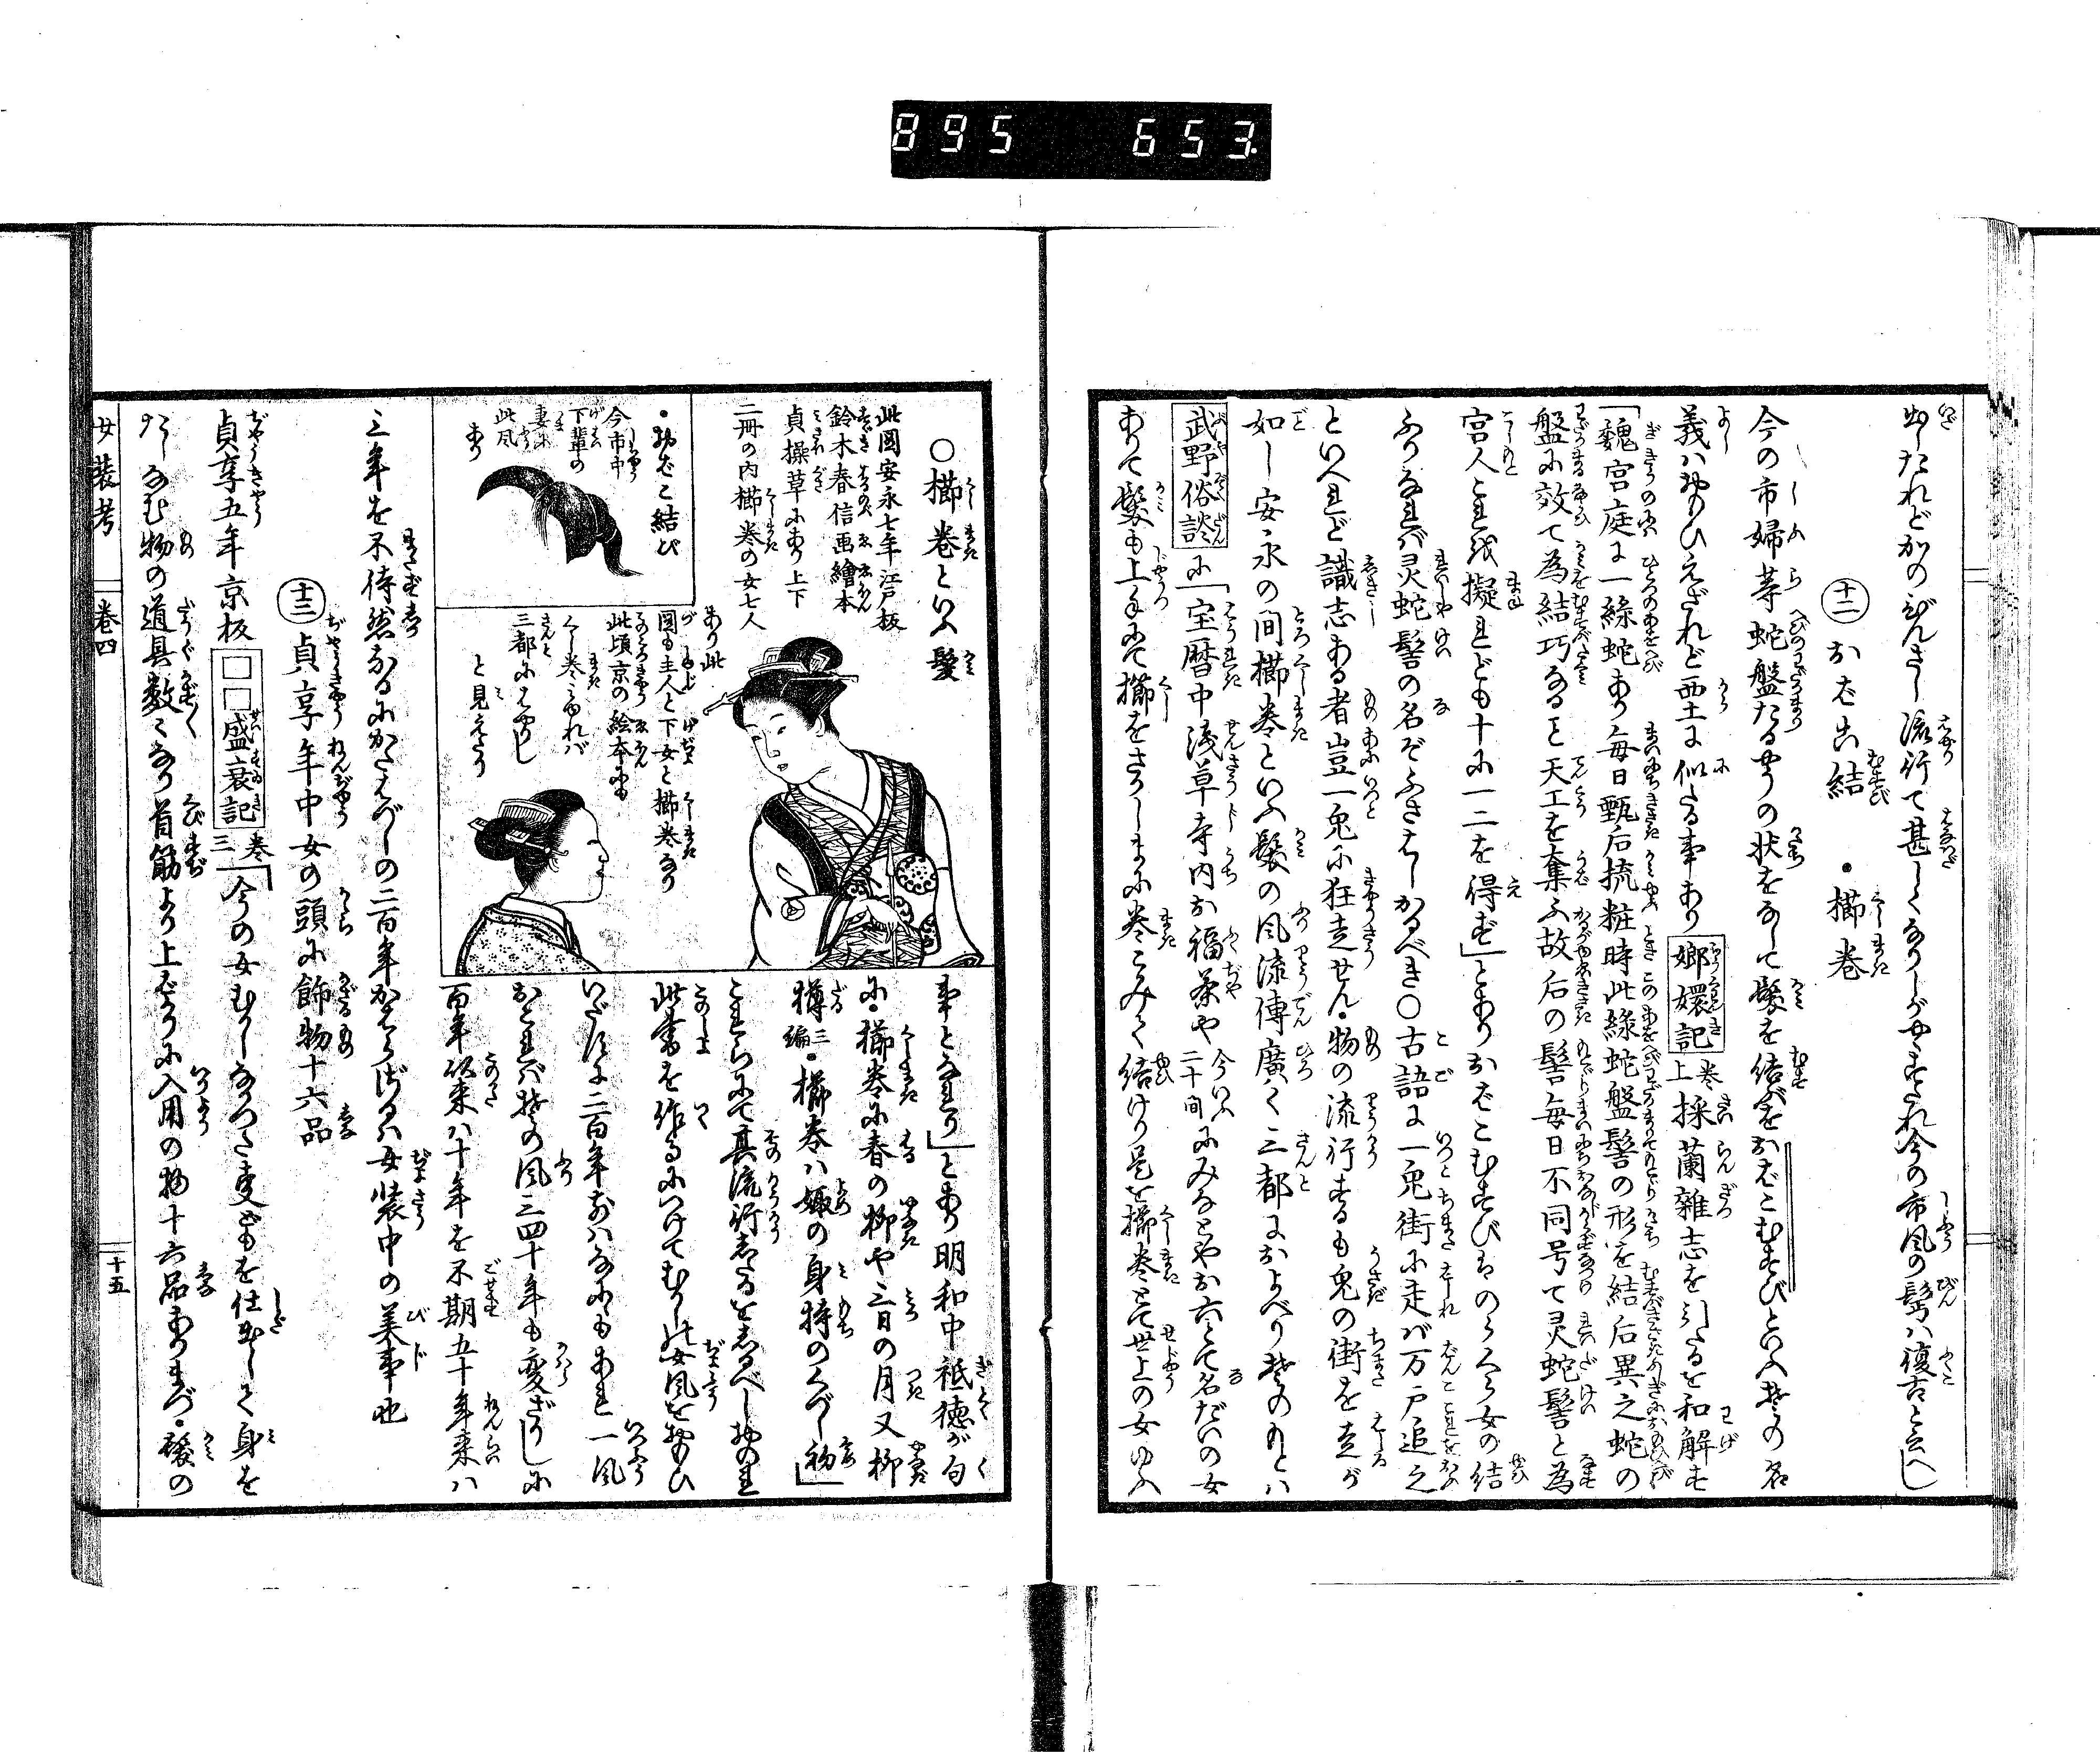 895 653
出したれどかのびんさし流行て甚しくなりしがやうすたれ今の市風の髩ハ復古と云べし
十二 おばこ結 ・櫛巻
今の市婦等蛇盤たるやうの状をなして髪を結ぶをおばこむすびといふ其の名
義ハおもひえざれど西土に似たる事あり 瑯嬛記 巻上 採蘭雑志を引たるを和解す
「魏宮庭に一緑蛇あり毎日甄后梳粧時此緑蛇盤髻の形を結后異之蛇の
盤に效て為結巧なること天工を奪ふ故后の髻毎日不同号て灵蛇髻と為
宮人これを擬れども十に一二を得ず」とありおばこむすびはのらくら女の結
ふりなれば灵蛇髻の名ぞふさはしかるべき○古語に一兎街に走バ万戸追之
といへれど識志ある者豈一兎に狂走せん・物の流行するも兎の街を走が
如し安永の間櫛巻といふ髪の風流傳廣く三都におよべり其のもとハ
武野俗談 に「宝暦中浅草寺内お福茶や 今いふ二十間 にみなとやお六とて名だいの女
ありて髪も上手にて櫛をさかしまに巻こみて結けり是を櫛巻とて世上の女ゆふ
○櫛巻といふ髪
此図安永七年江戸板
鈴木春信画繪本
貞操草にあり上下
二冊の内櫛巻の女七人
あり此
図も主人と下女と櫛巻なり
此頃京の絵本にも
くし巻あれバ
三都にはやりし
と見えたり
・おばこ結び
今市中
下輩の
妻に
此風
あり
事となれり」とあり明和中祇徳が句
に・櫛巻に春の柳や三日の月又柳
樽 三編 ・櫛巻ハ娵の身持のくづし初」
これらにて其流行したるをしるべしおのれ
此書を作るにつけてむかしの女風をおもひ
いだすに二百年前ハなにもあれ一風
おこれバ其の風三四十年も変ざりしに
百年以来ハ十年を不期五十年来ハ
三年を不待然るにかたはづしの二百年かはらざるハ女装中の美事也
十三 貞享年中女の頭に飾物十六品
貞享五年京板 □□盛衰記 巻三 「今の女むかしなかつた事どもを仕出して身を
たしなむ物の道具数々なり首筋より上ばかりに入用の物十六品ありまづ・髪の
女装考 巻四 十五